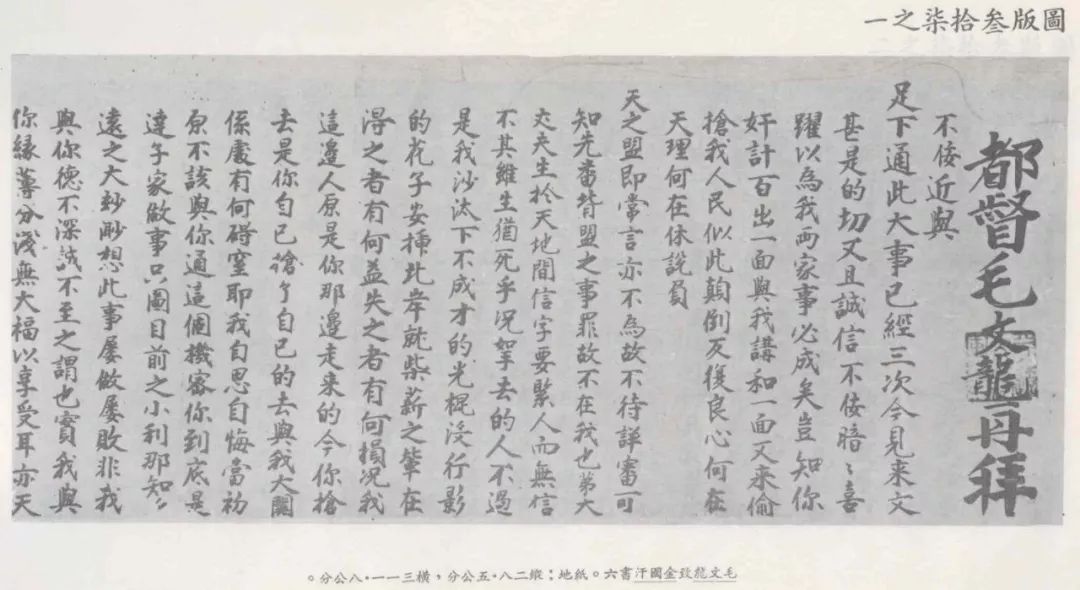 圖版叁拾柒之一
都督毛文龍再拜
不佞近與
足下通此大事已經三次今見来文
甚是的切又且誠信不佞暗〻喜
躍以為我两家事必成矣豈知你
奸計百出一面與我講和一面又来偷
搶我人民似此顛倒反復良心何在
天理何在休説負
天之盟即常言亦不為故不待詳審可
知先畨背盟之事罪故不在我也第大
丈夫生於天地間信字要緊人而無信
不其雖生猶死乎况拏去的人不過
是我沙汰下不成才的光棍没行影
的花子安揷北岸就柴薪之輩在
淂之者有何益失之者有何損况我
這邊人原是你那邊走来的今你搶
去是你自已搶了自已的去與我大關
係處有何碍室耶我自思自悔當初
原不該與你通這個機宻你到底是
達子家做事只圖目前之小利那知〻
遠之大玅玅想此事屡做屡敗非我
與你德不深誠不至之謂也實我與
你縁薄分淺無大福以享受耳亦天
毛文龍致金國汗書六。紙地；縱二八·五公分，橫三一一·八公分。